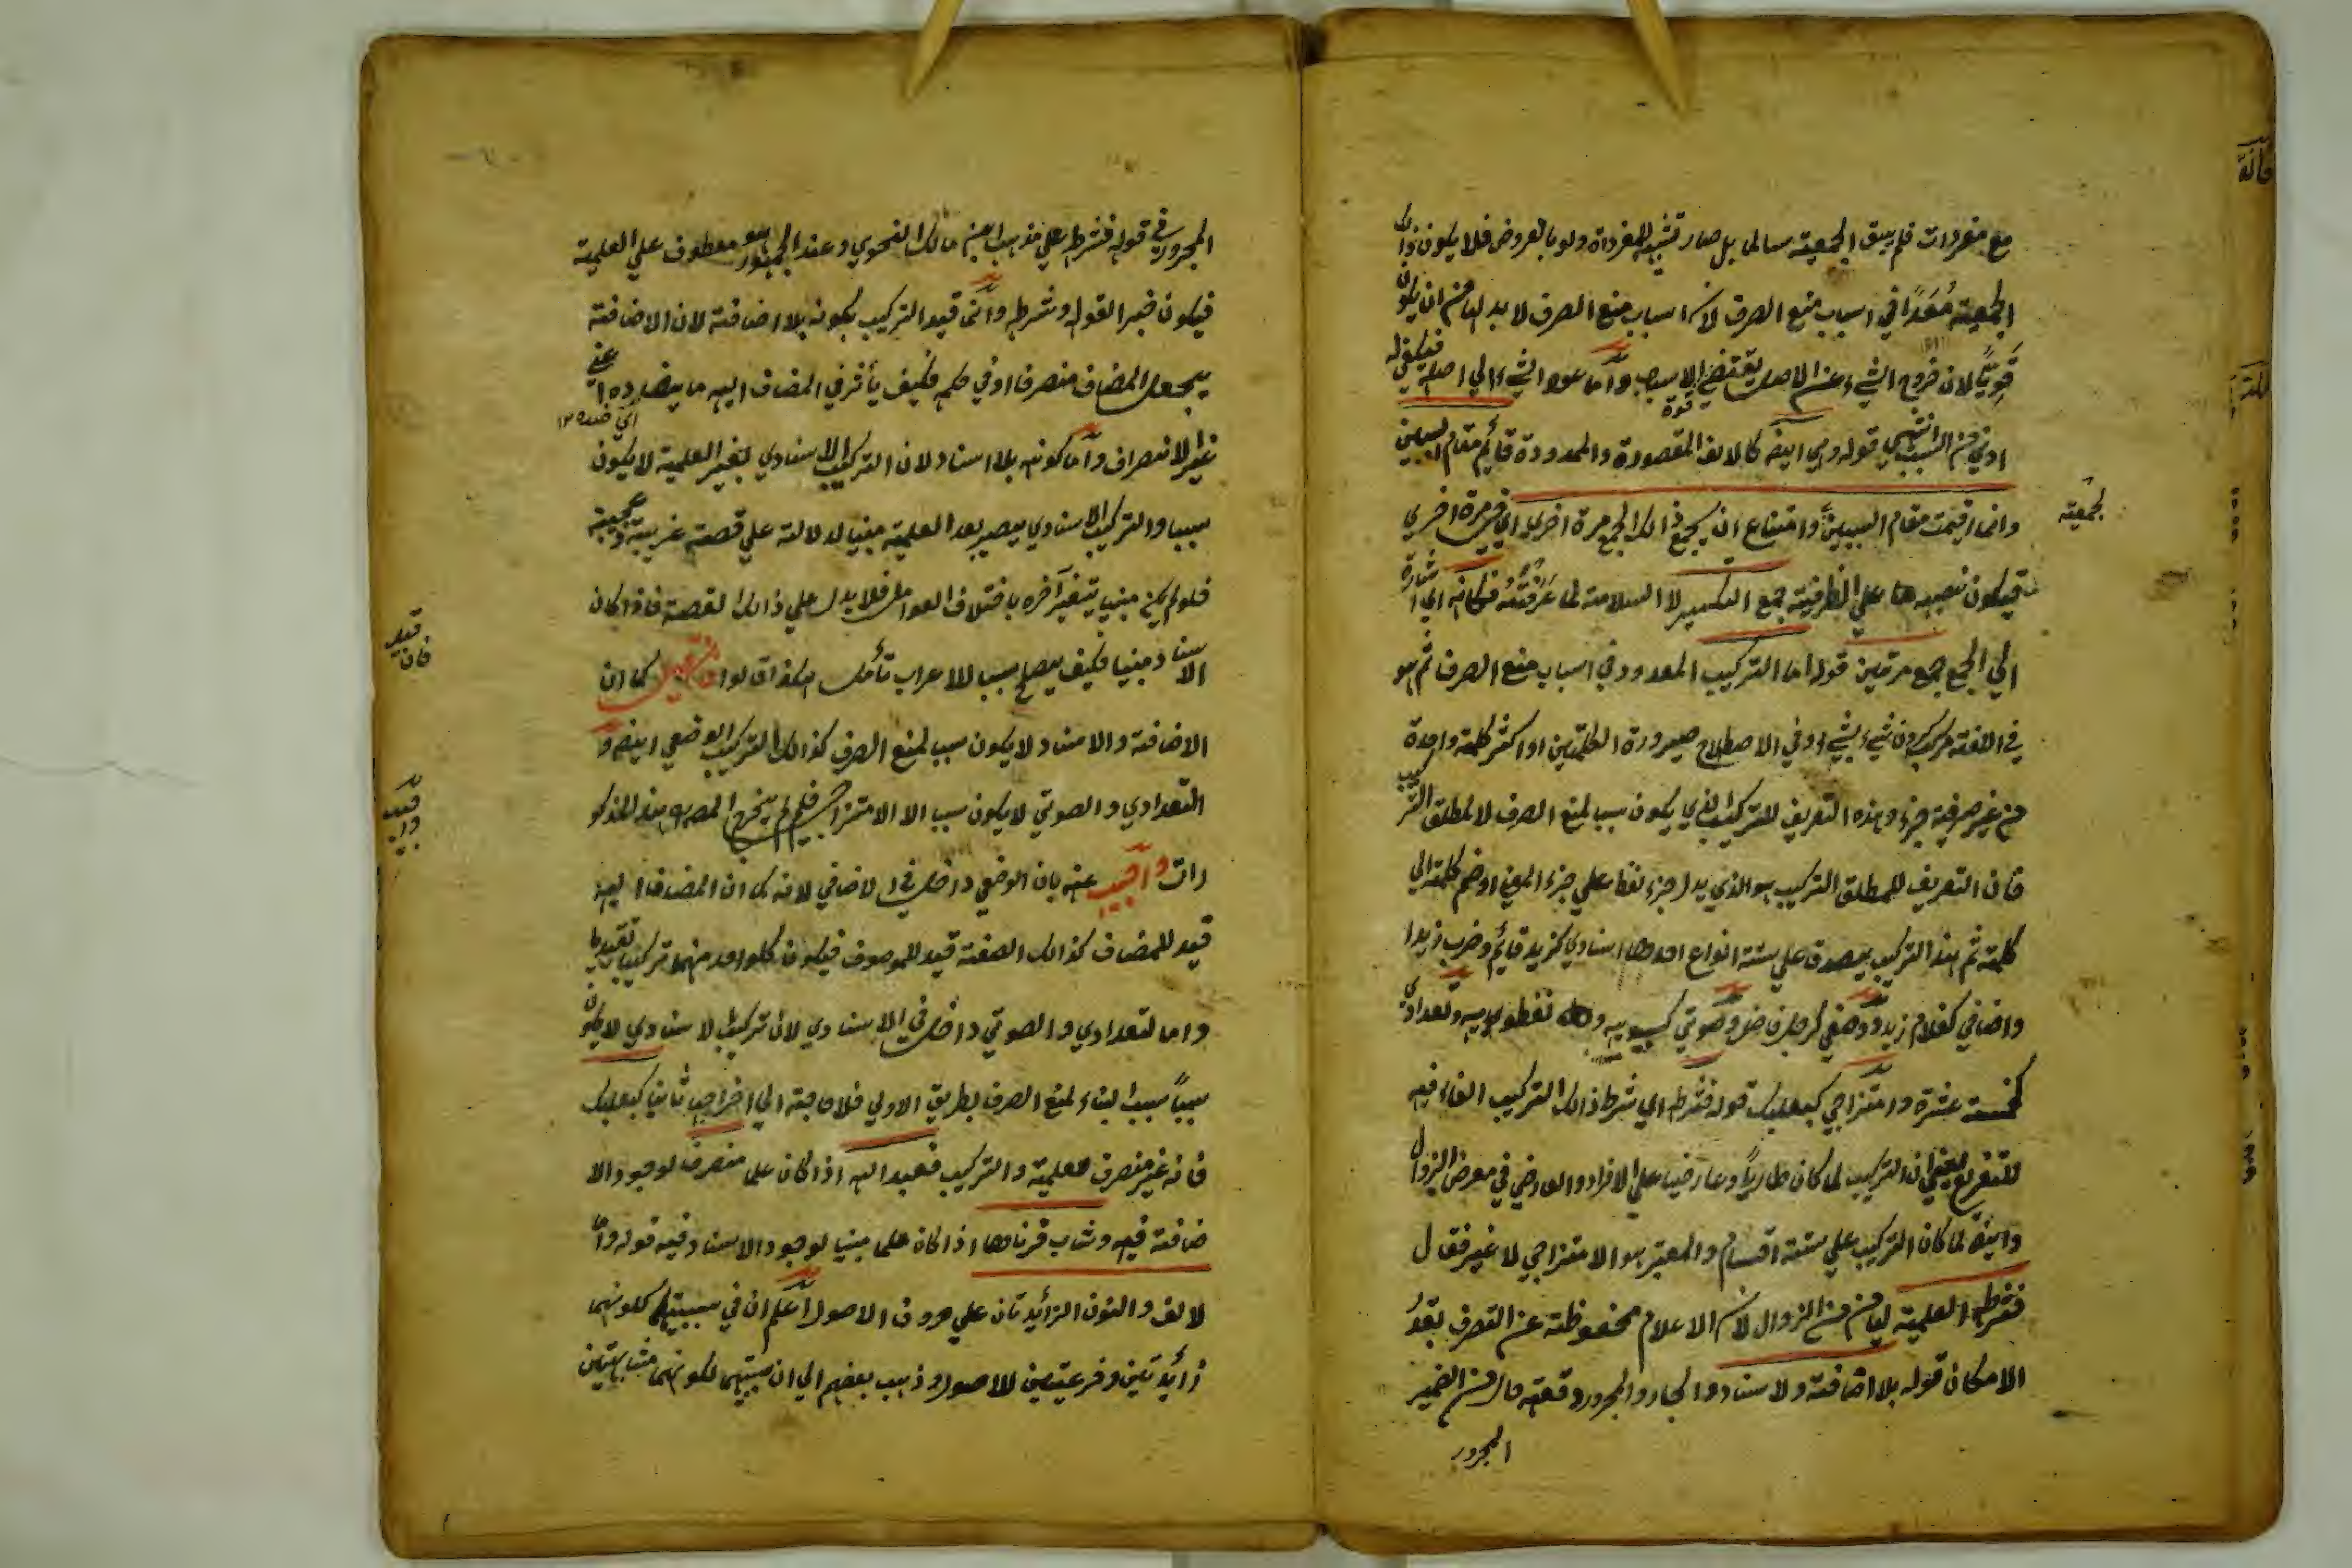 مع مفردات فلم يبق الجمعية سالما بل صار تشبيه المفرداة ولو بالعروض فلا يكون ذالك
الجمعية مُعَدًا في اسباب منع الصرف لان اسباب منع الصرف لا بد لها من ان يكون
قَوِيًا لان خروج الشيء عن الاصل يقتضي الاسبب واما عود الشيء الي اصله فيكفيه
ادني من السبب انتهي قوله وهي ايضه كالالف المقصورة والممدودة قايم مقام السببين
وانما اقيمت مقام السببين وامتناع ان يجمع ذالك الجمع مرة اخري اي مرة اخري
لجمعية
فيكون نصبها علي الظرفية جمع التكسير لا السلامة لما عَرَفْتَهُ فكانه اي اشارة
الي الجمع جمع مرتين قوله اما التركيب المعدود في اسباب منع الصرف ثم هو
في اللغة مركبون شيء بشيء وفي الاصطلاح صيرورة الكلمتين او اكثر كلمة واحدة
من غير حرفية جزء وهذه التعريف للتركيب الذي يكون سبب لمنع الصرف لا لمطلق التركيب
فان التعريف للمطلق التركيب هو الذي يدل جزء لفظه علي جزء المعني او ضم كلمة الي
كلمة ثم هذا التركيب يصدق علي ستة انواع احدها اسنادي كزيد قايم وضرب زيدا
واضافي كغلام زيد ووصفي كرجل فاضل وصوتي كسيبويه و نفطويه وتعدادي
كخمسة عشرة وامتزاجي كبعلبك قوله فشرطه اي شرط ذالك التركيب الفاء فيه
للتفريع يعني ان التركيب لما كان طاريا وعارضيا علي الافراد والعارضي في معرض الزوال
وايضه لما كان التركيب علي ستة اقسام والمعتبر هو الامتزاجي لا غير فقال
فشرطه العلمية ليامن من الزوال لان الاعلام محفوظة عن التصرف بقدْر
الامكان قوله بلا اضافة ولا اسناد والجار والمجرور وقعت حال من الضمير
المجرور
المجرور في قوله فشرطه علي مذهب ابن مالك النحوي وعند الجمهور هو معطوف علي العلمية
فيكون خبر القوله وشرطه وانما قيد التركيب بكونه بلا اضافة لان الاضافة
يجعل المضاف منصرفا او في حكمه فكيف يأثر في المضاف اليه ما يضاده اعني
اي ضده ١٢
غير الانصراف واما كونه بلا اسناد لان التركيب الاسنادي بغير العلمية لا يكون
سببا والتركيب الاسنادي يصير بعد العلمية مبنيا لدلالته علي قصة غريبة وعجيبة
فلو لم يكن مبنيا يتغير آخره باختلاف العوامل فلا يدل علي ذالك القصة فاذا كان
الاسناد مبنيا فكيف يصلح سببا للاعراب تأمل هكذا قالوا فان قيل كما ان
قيد
فان
الاضافة والاسناد لا يكون سبب لمنع الصرف كذالك التركيب الوضعي ايضه و
التعدادي والصوتي لا يكون سببا الا الامتزاج فلم لم يخرج المصنف هذ المذكو
رات واجيب عنه بان الوضعي داخل في الاضافي لانه كما ان المضاف اليه
قيد للمضاف كذالك الصفة قيد للموصوف فيكون كلواحد منهما تركيبا تقييديا
واما لتعدادي والصوتي داخل في الاسنادي لان تركيب الاسنادي لا يكون
سبباً سبب البناء لمنع الصرف بطريق الاولي فلا حاجة الي اخراجها ثانيا كبعلبك
فانه غير منصرف علمية والتركيب فعبد الله اذا كان علما منصرف لوجود الا
ضافة فيه وشاب قرناها اذا كان علما مبنيا لوجود الاسناد فيه قوله واما
لالف والنون الزائيدتان علي حروف الاصول اعلم ان في سببيتهما لكونهما
زائيدتين وفرعيتين للاصول وذهب بعضهم الي ان سببيتهما لكونهما مشابهتين